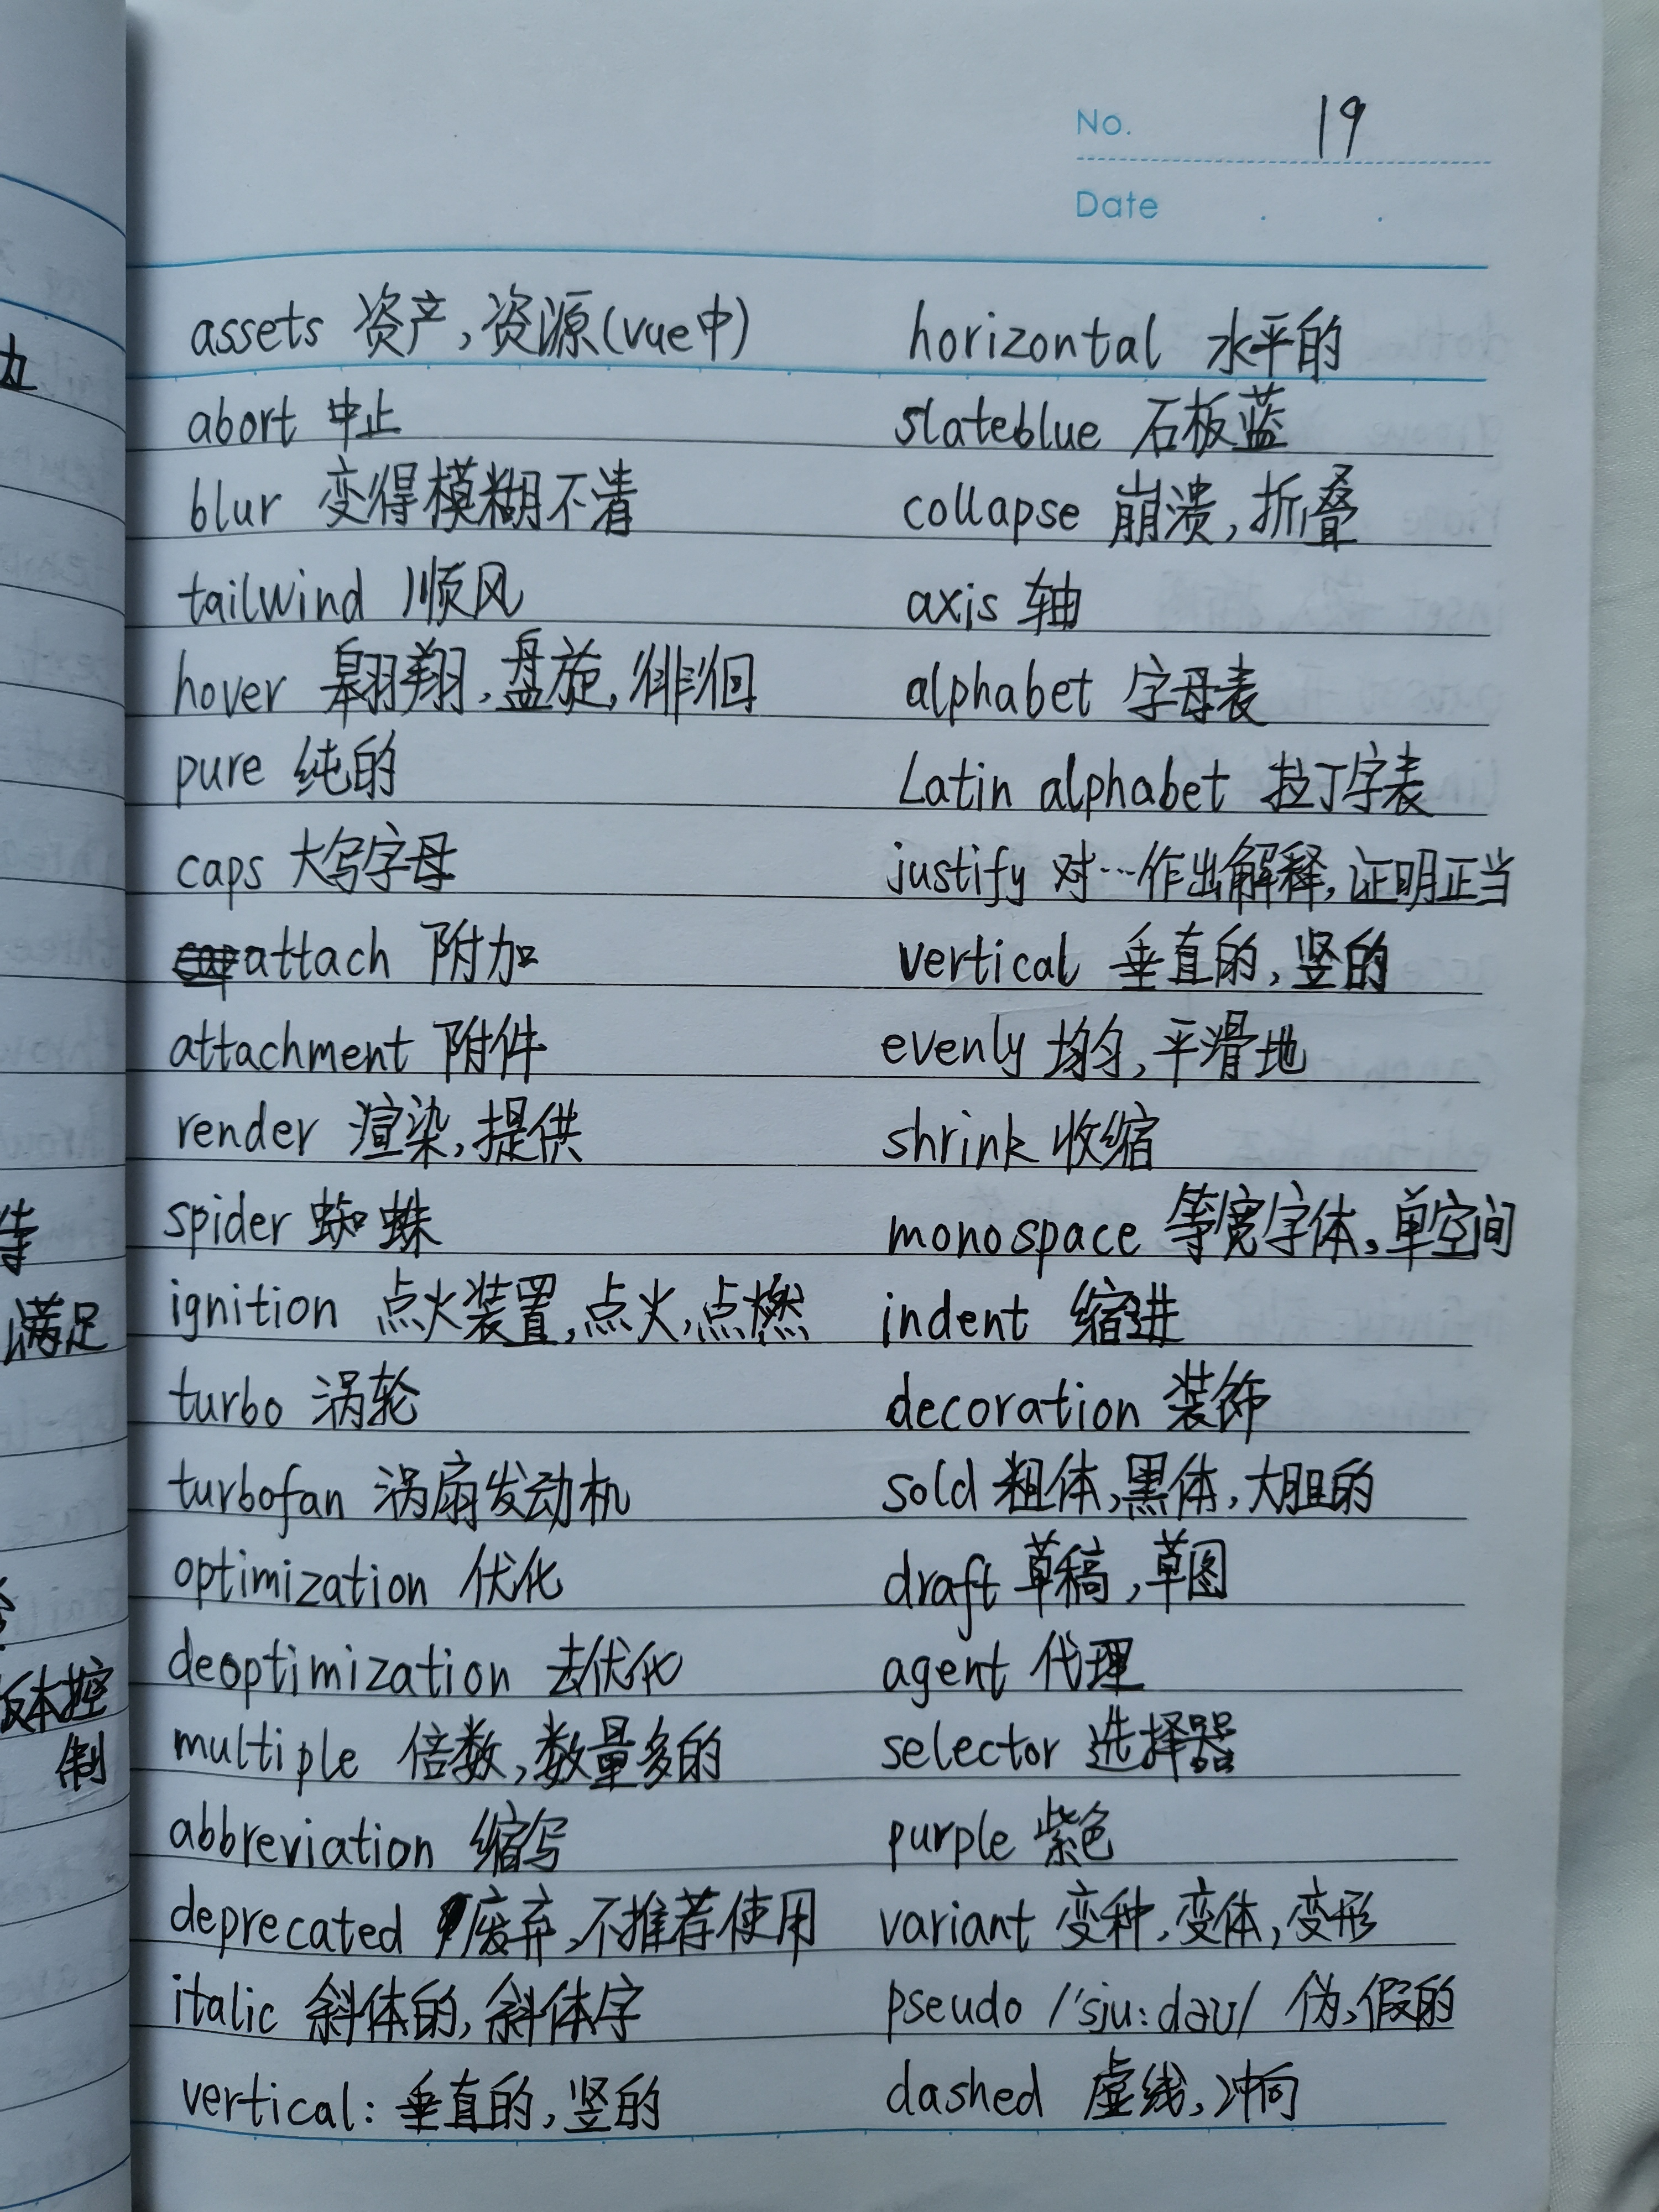 No. 19
Date . .
assets 资产,资源(vue中)
abort 中止
blur 变得模糊不清
tailwind 顺风
hover 翱翔,盘旋,徘徊
pure 纯的
caps 大写字母
attach 附加
attachment 附件
render 渲染,提供
spider 蜘蛛
ignition 点火装置,点火,点燃
turbo 涡轮
turbofan 涡扇发动机
optimization 优化
deoptimization 去优化
multiple 倍数,数量多的
abbreviation 缩写
deprecated 废弃,不推荐使用
italic 斜体的,斜体字
vertical: 垂直的,竖的
horizontal 水平的
slateblue 石板蓝
collapse 崩溃,折叠
axis 轴
alphabet 字母表
Latin alphabet 拉丁字表
justify 对…作出解释,证明正当
vertical 垂直的,竖的
evenly 均匀,平滑地
shrink 收缩
monospace 等宽字体,单空间
indent 缩进
decoration 装饰
sold 粗体,黑体,大胆的
draft 草稿,草图
agent 代理
selector 选择器
purple 紫色
variant 变种,变体,变形
pseudo /'sju:dəʊ/ 伪,假的
dashed 虚线,冲向
满足
版本控
制